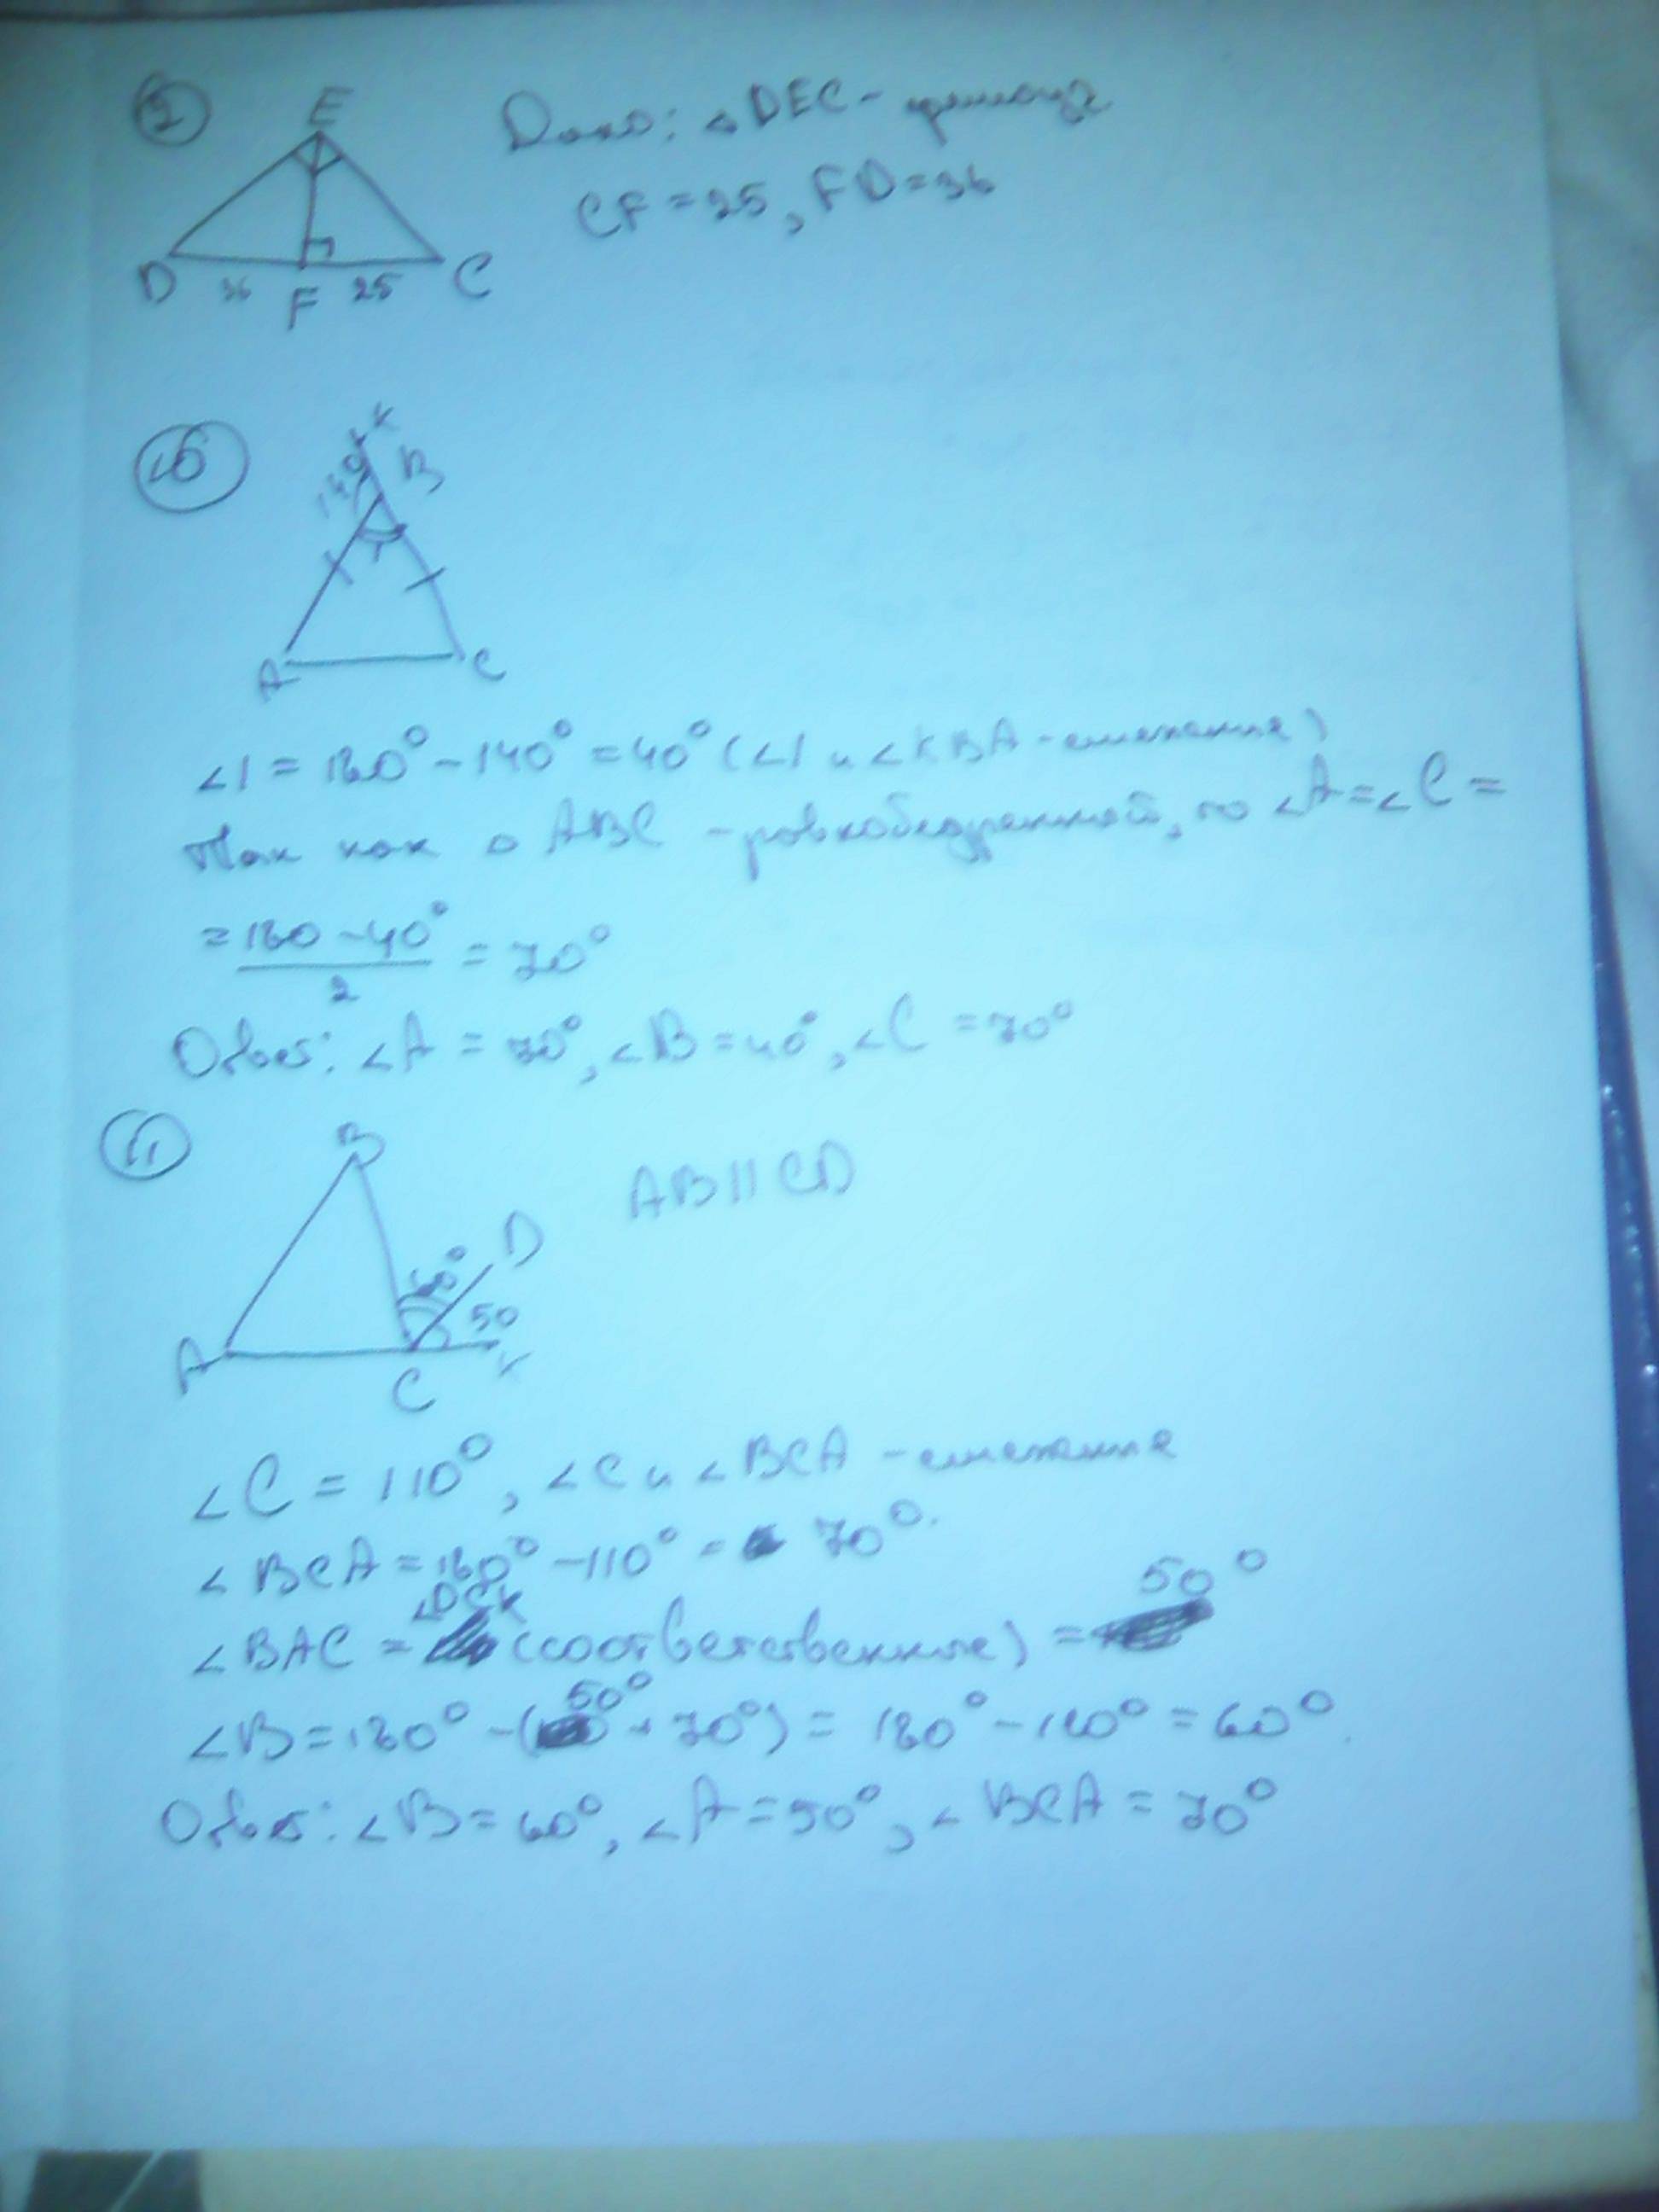 2
E
Дано: △DEC -
CF = 25, FD = 36
D 36 F 25 C
K
140 B
1
A C
∠1 = 180° - 140° = 40° (∠1 и ∠KBA - смежные)
Так как △ ABC - равнобедренный, то ∠A = ∠C =
= 180 - 40° / 2 = 70°
Ответ: ∠A = 70°, ∠B = 40°, ∠C = 70°
B
AB || CD
D
60°
50
A C K
∠C = 110°, ∠C и ∠BCA - смежные
∠BCA = 180° - 110° = 70°.
∠BAC = ∠DCK (соответственные) = 50°
∠B = 180° - (50° + 70°) = 180° - 120° = 60°.
Ответ: ∠B = 60°, ∠A = 50°, ∠BCA = 70°